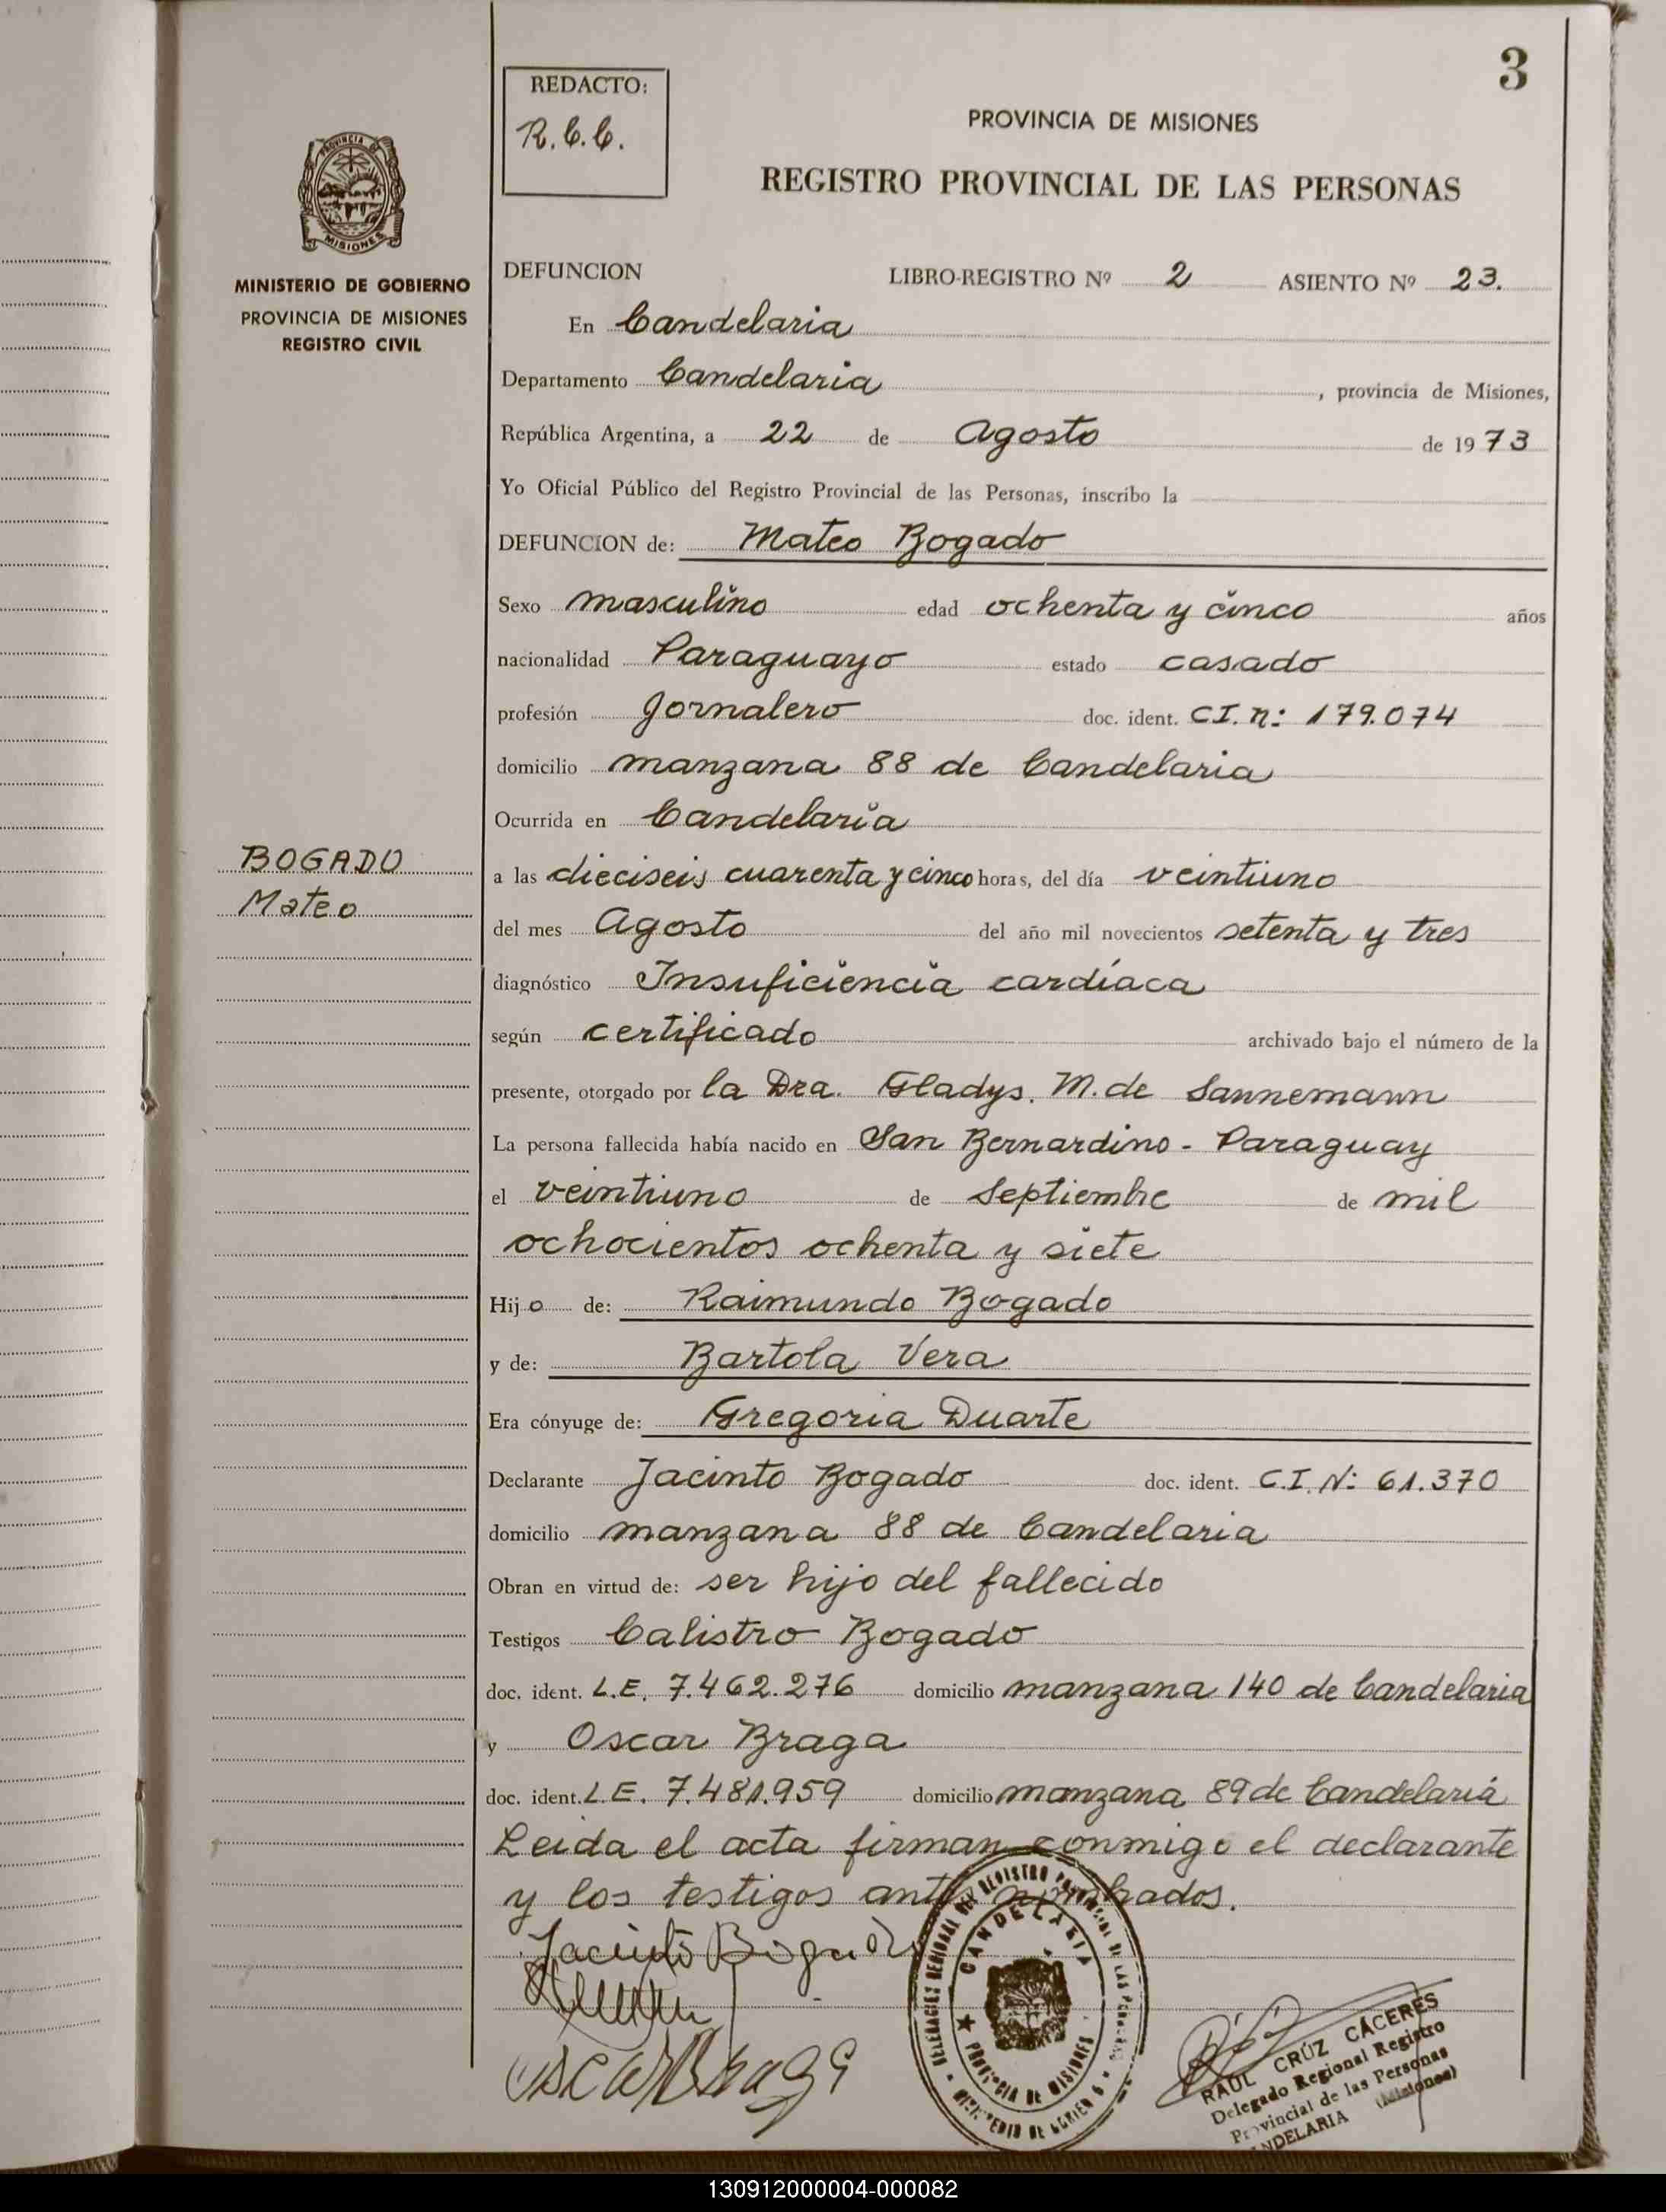 3
REDACTO:
R.C.C.
PROVINCIA DE MISIONES
REGISTRO PROVINCIAL DE LAS PERSONAS
PROVINCIA DE
MISIONES
MINISTERIO DE GOBIERNO
PROVINCIA DE MISIONES
REGISTRO CIVIL
DEFUNCION LIBRO-REGISTRO Nº 2 ASIENTO Nº 23.
En Candelaria
Departamento Candelaria, provincia de Misiones,
República Argentina, a 22 de Agosto de 1973
Yo Oficial Público del Registro Provincial de las Personas, inscribo la
DEFUNCION de: Mateo Bogado
Sexo masculino edad ochenta y cinco años
nacionalidad Paraguayo estado casado
profesión Jornalero doc. ident. CI. n: 179.074
domicilio manzana 88 de Candelaria
Ocurrida en Candelaria
BOGADO
Mateo
a las dieciseis cuarenta y cinco horas, del día veintiuno
del mes Agosto del año mil novecientos setenta y tres
diagnóstico Insuficiencia cardíaca
según certificado archivado bajo el número de la
presente, otorgado por la Dra. Gladys. M. de Sannemann
La persona fallecida había nacido en San Bernardino - Paraguay
el veintiuno de Septiembre de mil
ochocientos ochenta y siete
Hijo de: Raimundo Bogado
y de: Bartola Vera
Era cónyuge de: Gregoria Duarte
Declarante Jacinto Bogado doc. ident. C.I. N: 61.370
domicilio manzana 88 de Candelaria
Obran en virtud de: ser hijo del fallecido
Testigos Calistro Bogado
doc. ident. L.E. 7.462.276 domicilio manzana 140 de Candelaria
y Oscar Braga
doc. ident. L.E. 7.481.959 domicilio manzana 89 de Candelaria
Leida el acta firman conmigo el declarante
y los testigos ante nombrados.
Jacinto Bogado
Oscar Braga
CANDELARIA
PROVINCIA DE MISIONES
RAUL CRÚZ CÁCERES
Delegado Regional Registro
Provincial de las Personas
NDELARIA (Misiones)
130912000004-000082